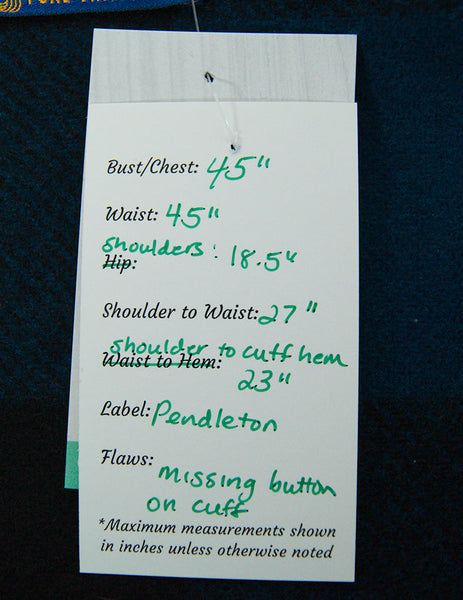 Bust/Chest: 45"
Waist: 45"
shoulders: 18.5"
Hip:
Shoulder to Waist: 27"
shoulder to cuff hem
Waist to Hem:
23"
Label: Pendleton
Flaws:
missing button
on cuff
*Maximum measurements shown
in inches unless otherwise noted